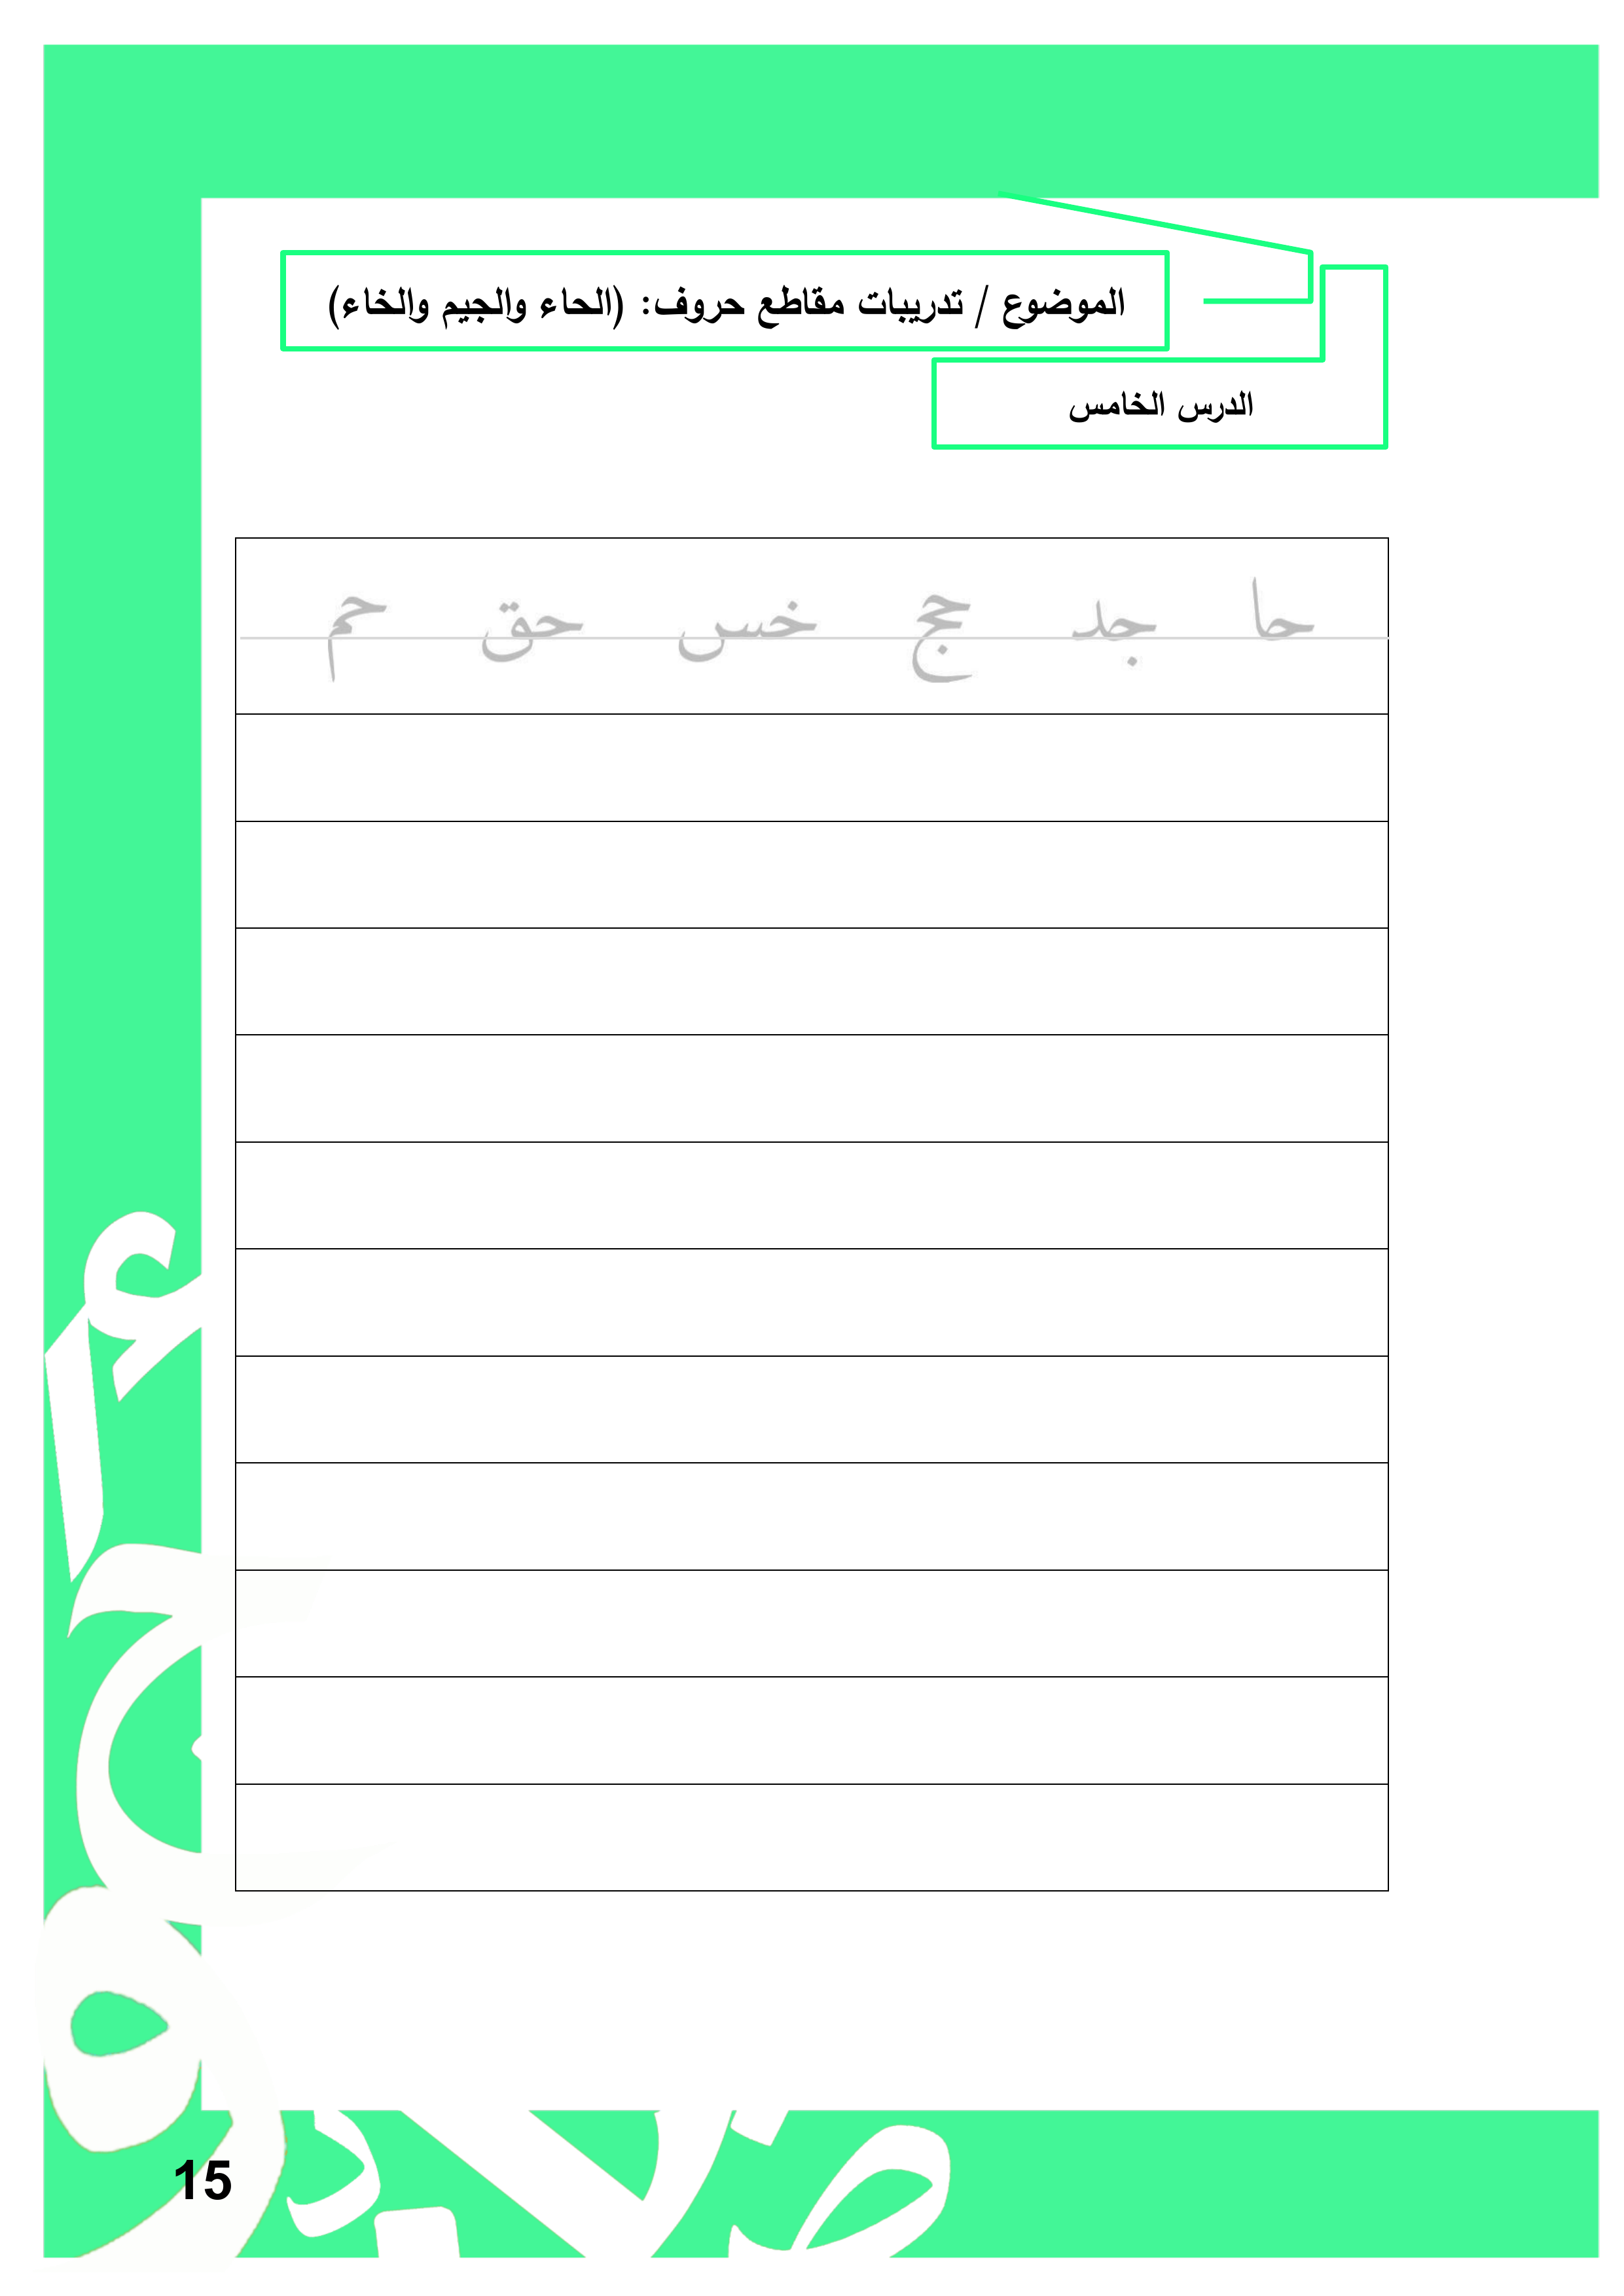 الموضوع / تدريبات مقاطع حروف: (الحاء والجيم والخاء)
الدرس الخامس
حا جد جج خس حق حم
15